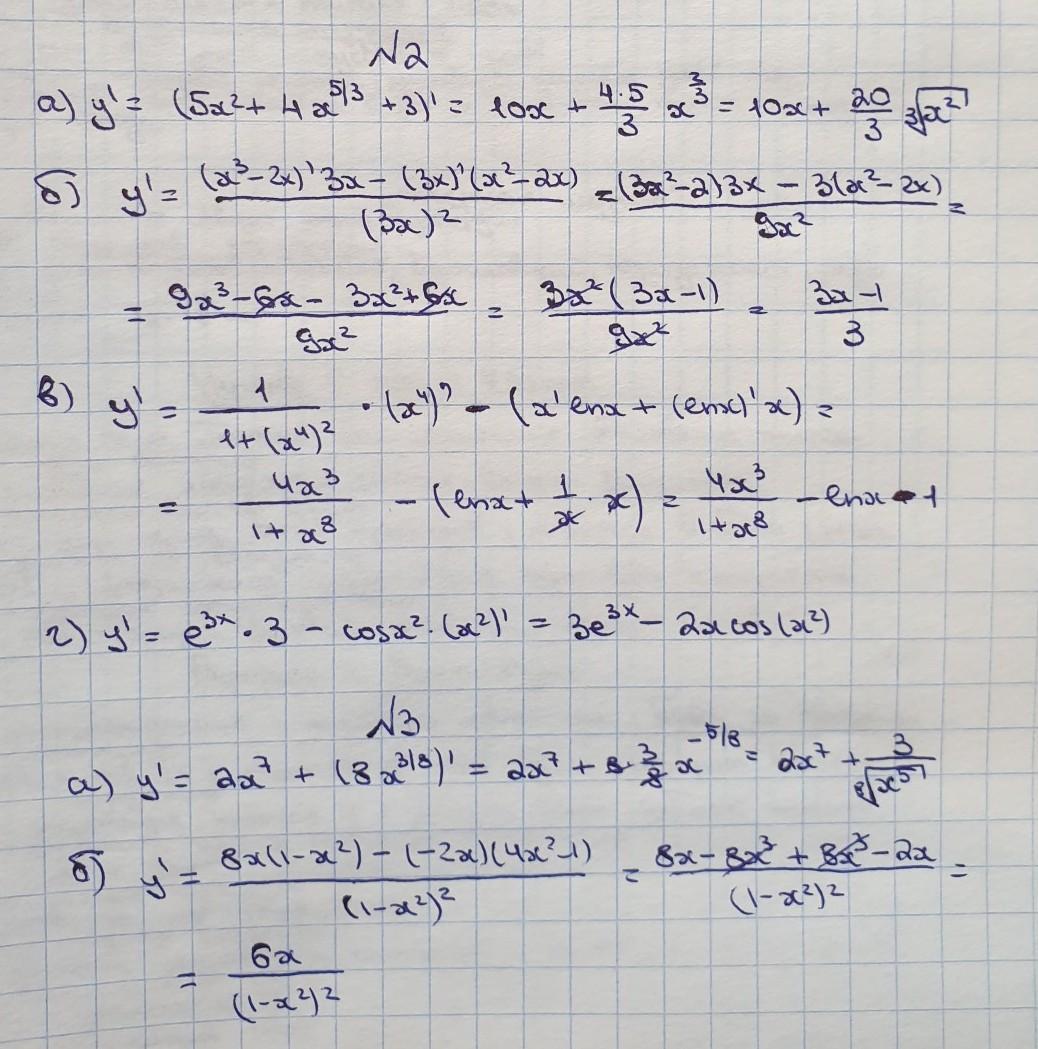 №2
а) y' = (5x² + 4x^{5/3} + 3)' = 10x + \frac{4·5}{3} x^{\frac{2}{3}} = 10x + \frac{20}{3} \sqrt[3]{x²}
б) y' = \frac{(x³-2x)' 3x - (3x)'(x²-2x)}{(3x)²} = \frac{(3x²-2)3x - 3(x²-2x)}{9x²} =
= \frac{9x³-6x - 3x²+6x}{9x²} = \frac{3x²(3x-1)}{9x²} = \frac{3x-1}{3}
в) y' = \frac{1}{1+(x⁴)²} · (x⁴)' - (x' lnx + (lnx)' x) =
= \frac{4x³}{1+x⁸} - (lnx + \frac{1}{x} · x) = \frac{4x³}{1+x⁸} - lnx - 1
г) y' = e^{3x} · 3 - cosx² · (x²)' = 3e^{3x} - 2x cos(x²)
№3
а) y' = 2x⁷ + (8x^{3/8})' = 2x⁷ + 8 · \frac{3}{8} x^{-5/8} = 2x⁷ + \frac{3}{\sqrt[8]{x⁵}}
б) y' = \frac{8x(1-x²) - (-2x)(4x²-1)}{(1-x²)²} = \frac{8x - 8x³ + 8x³ - 2x}{(1-x²)²} =
= \frac{6x}{(1-x²)²}